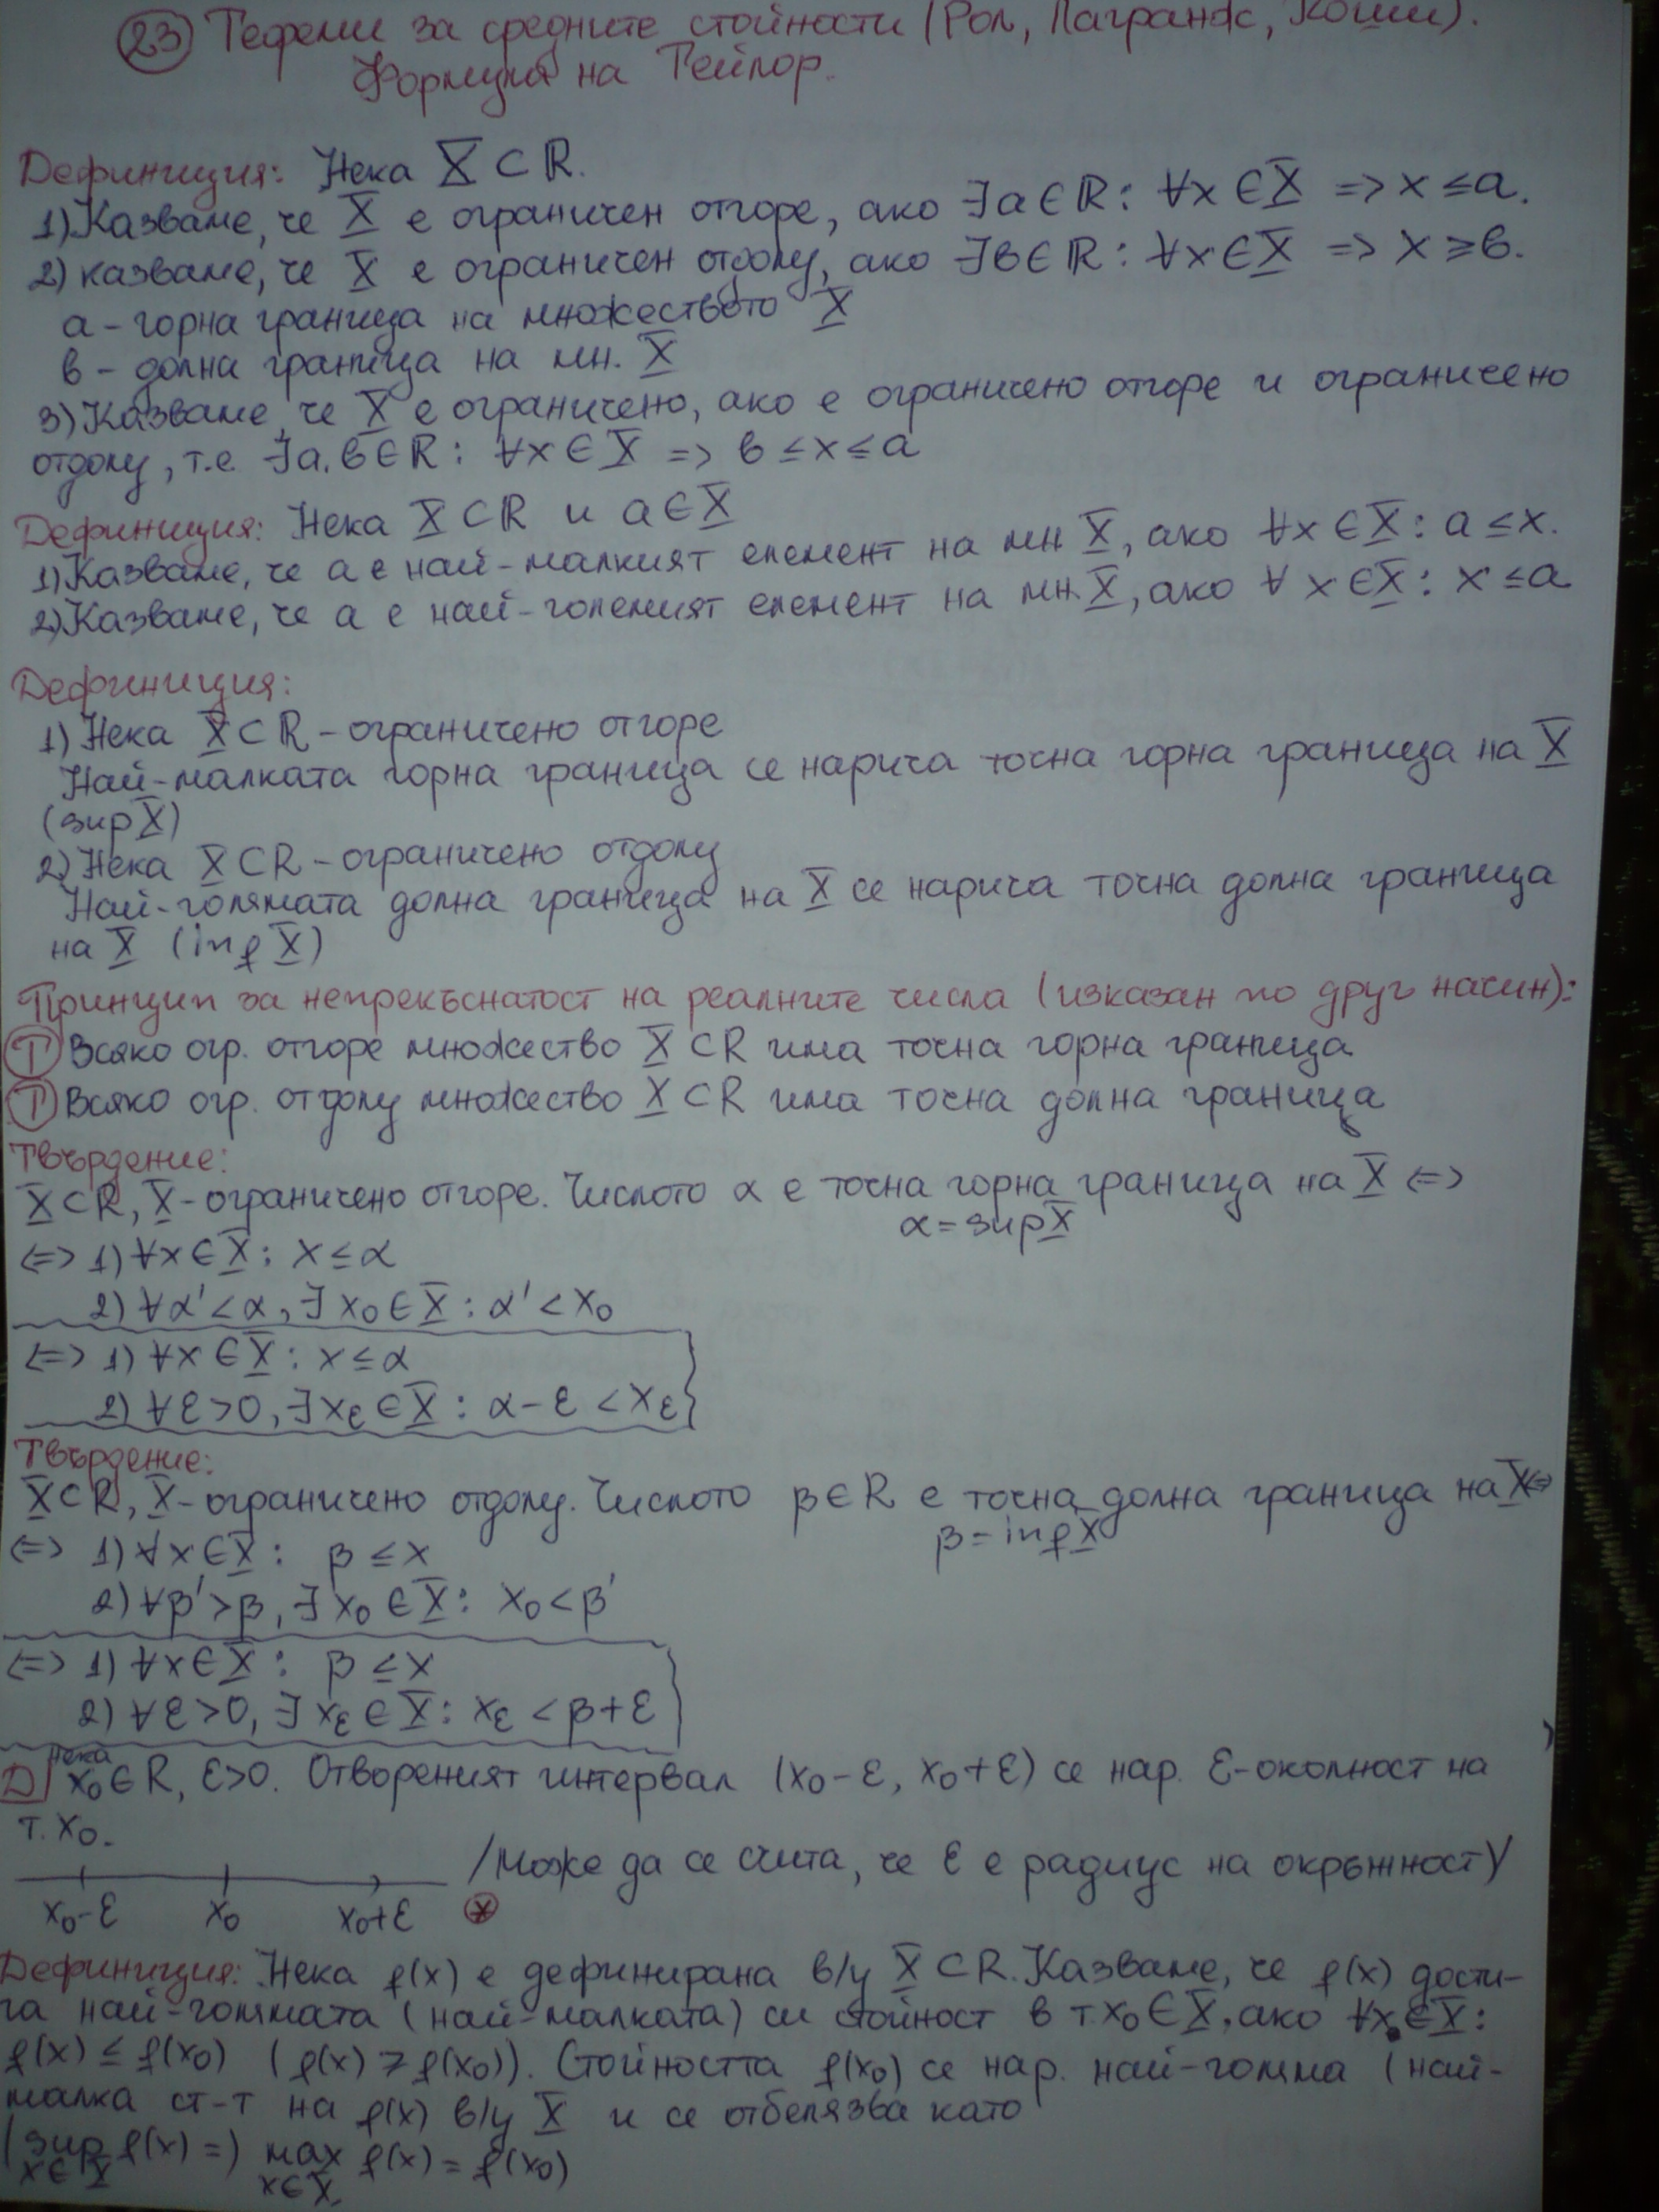 23 Теореми за средните стойности (Рол, Лагранж, Коши).
Формула на Тейлор.
Дефиниция: Нека X ⊂ R.
1) Казваме, че X е ограничен отгоре, ако ∃a∈R: ∀x∈X => x ≤ a.
2) казваме, че X е ограничен отдолу, ако ∃b∈R: ∀x∈X => x ≥ b.
a - горна граница на множеството X
b - долна граница на мн. X
3) Казваме, че X е ограничено, ако е ограничено отгоре и ограничено
отдолу, т.е. ∃a,b∈R: ∀x∈X => b ≤ x ≤ a
Дефиниция: Нека X ⊂ R и a∈X
1) Казваме, че a е най-малкият елемент на мн X, ако ∀x∈X: a ≤ x.
2) Казваме, че a е най-големият елемент на мн. X, ако ∀x∈X: x ≤ a
Дефиниция:
1) Нека X ⊂ R - ограничено отгоре
Най-малката горна граница се нарича точна горна граница на X
(sup X)
2) Нека X ⊂ R - ограничено отдолу
Най-голямата долна граница на X се нарича точна долна граница
на X (inf X)
Принцип за непрекъснатост на реалните числа (изказан по друг начин):
Т Всяко огр. отгоре множество X ⊂ R има точна горна граница
Т Всяко огр. отдолу множество X ⊂ R има точна долна граница
Твърдение:
X ⊂ R, X - ограничено отгоре. Числото α е точна горна граница на X <=>
α = sup X
<=> 1) ∀x∈X: x ≤ α
2) ∀α' < α, ∃x₀∈X: α' < x₀
<=> 1) ∀x∈X: x ≤ α
2) ∀ε>0, ∃x_ε∈X: α-ε < x_ε
Твърдение:
X ⊂ R, X - ограничено отдолу. Числото β∈R е точна долна граница на X <=>
β = inf X
<=> 1) ∀x∈X: β ≤ x
2) ∀β' > β, ∃x₀∈X: x₀ < β'
<=> 1) ∀x∈X: β ≤ x
2) ∀ε>0, ∃x_ε∈X: x_ε < β+ε
Д/ Нека x₀∈R, ε>0. Отвореният интервал (x₀-ε, x₀+ε) се нар. ε-околност на
т. x₀.
/Може да се счита, че ε е радиус на окръжност/
x₀-ε x₀ x₀+ε *
Дефиниция: Нека f(x) е дефинирана в/у X ⊂ R. Казваме, че f(x) дости-
га най-голямата (най-малката) си стойност в т. x₀∈X, ако ∀x∈X:
f(x) ≤ f(x₀) (f(x) ≥ f(x₀)). Стойността f(x₀) се нар. най-голяма (най-
малка ст-т на f(x) в/у X и се отбелязва като
(sup f(x) =) max f(x) = f(x₀)
x∈X x∈X